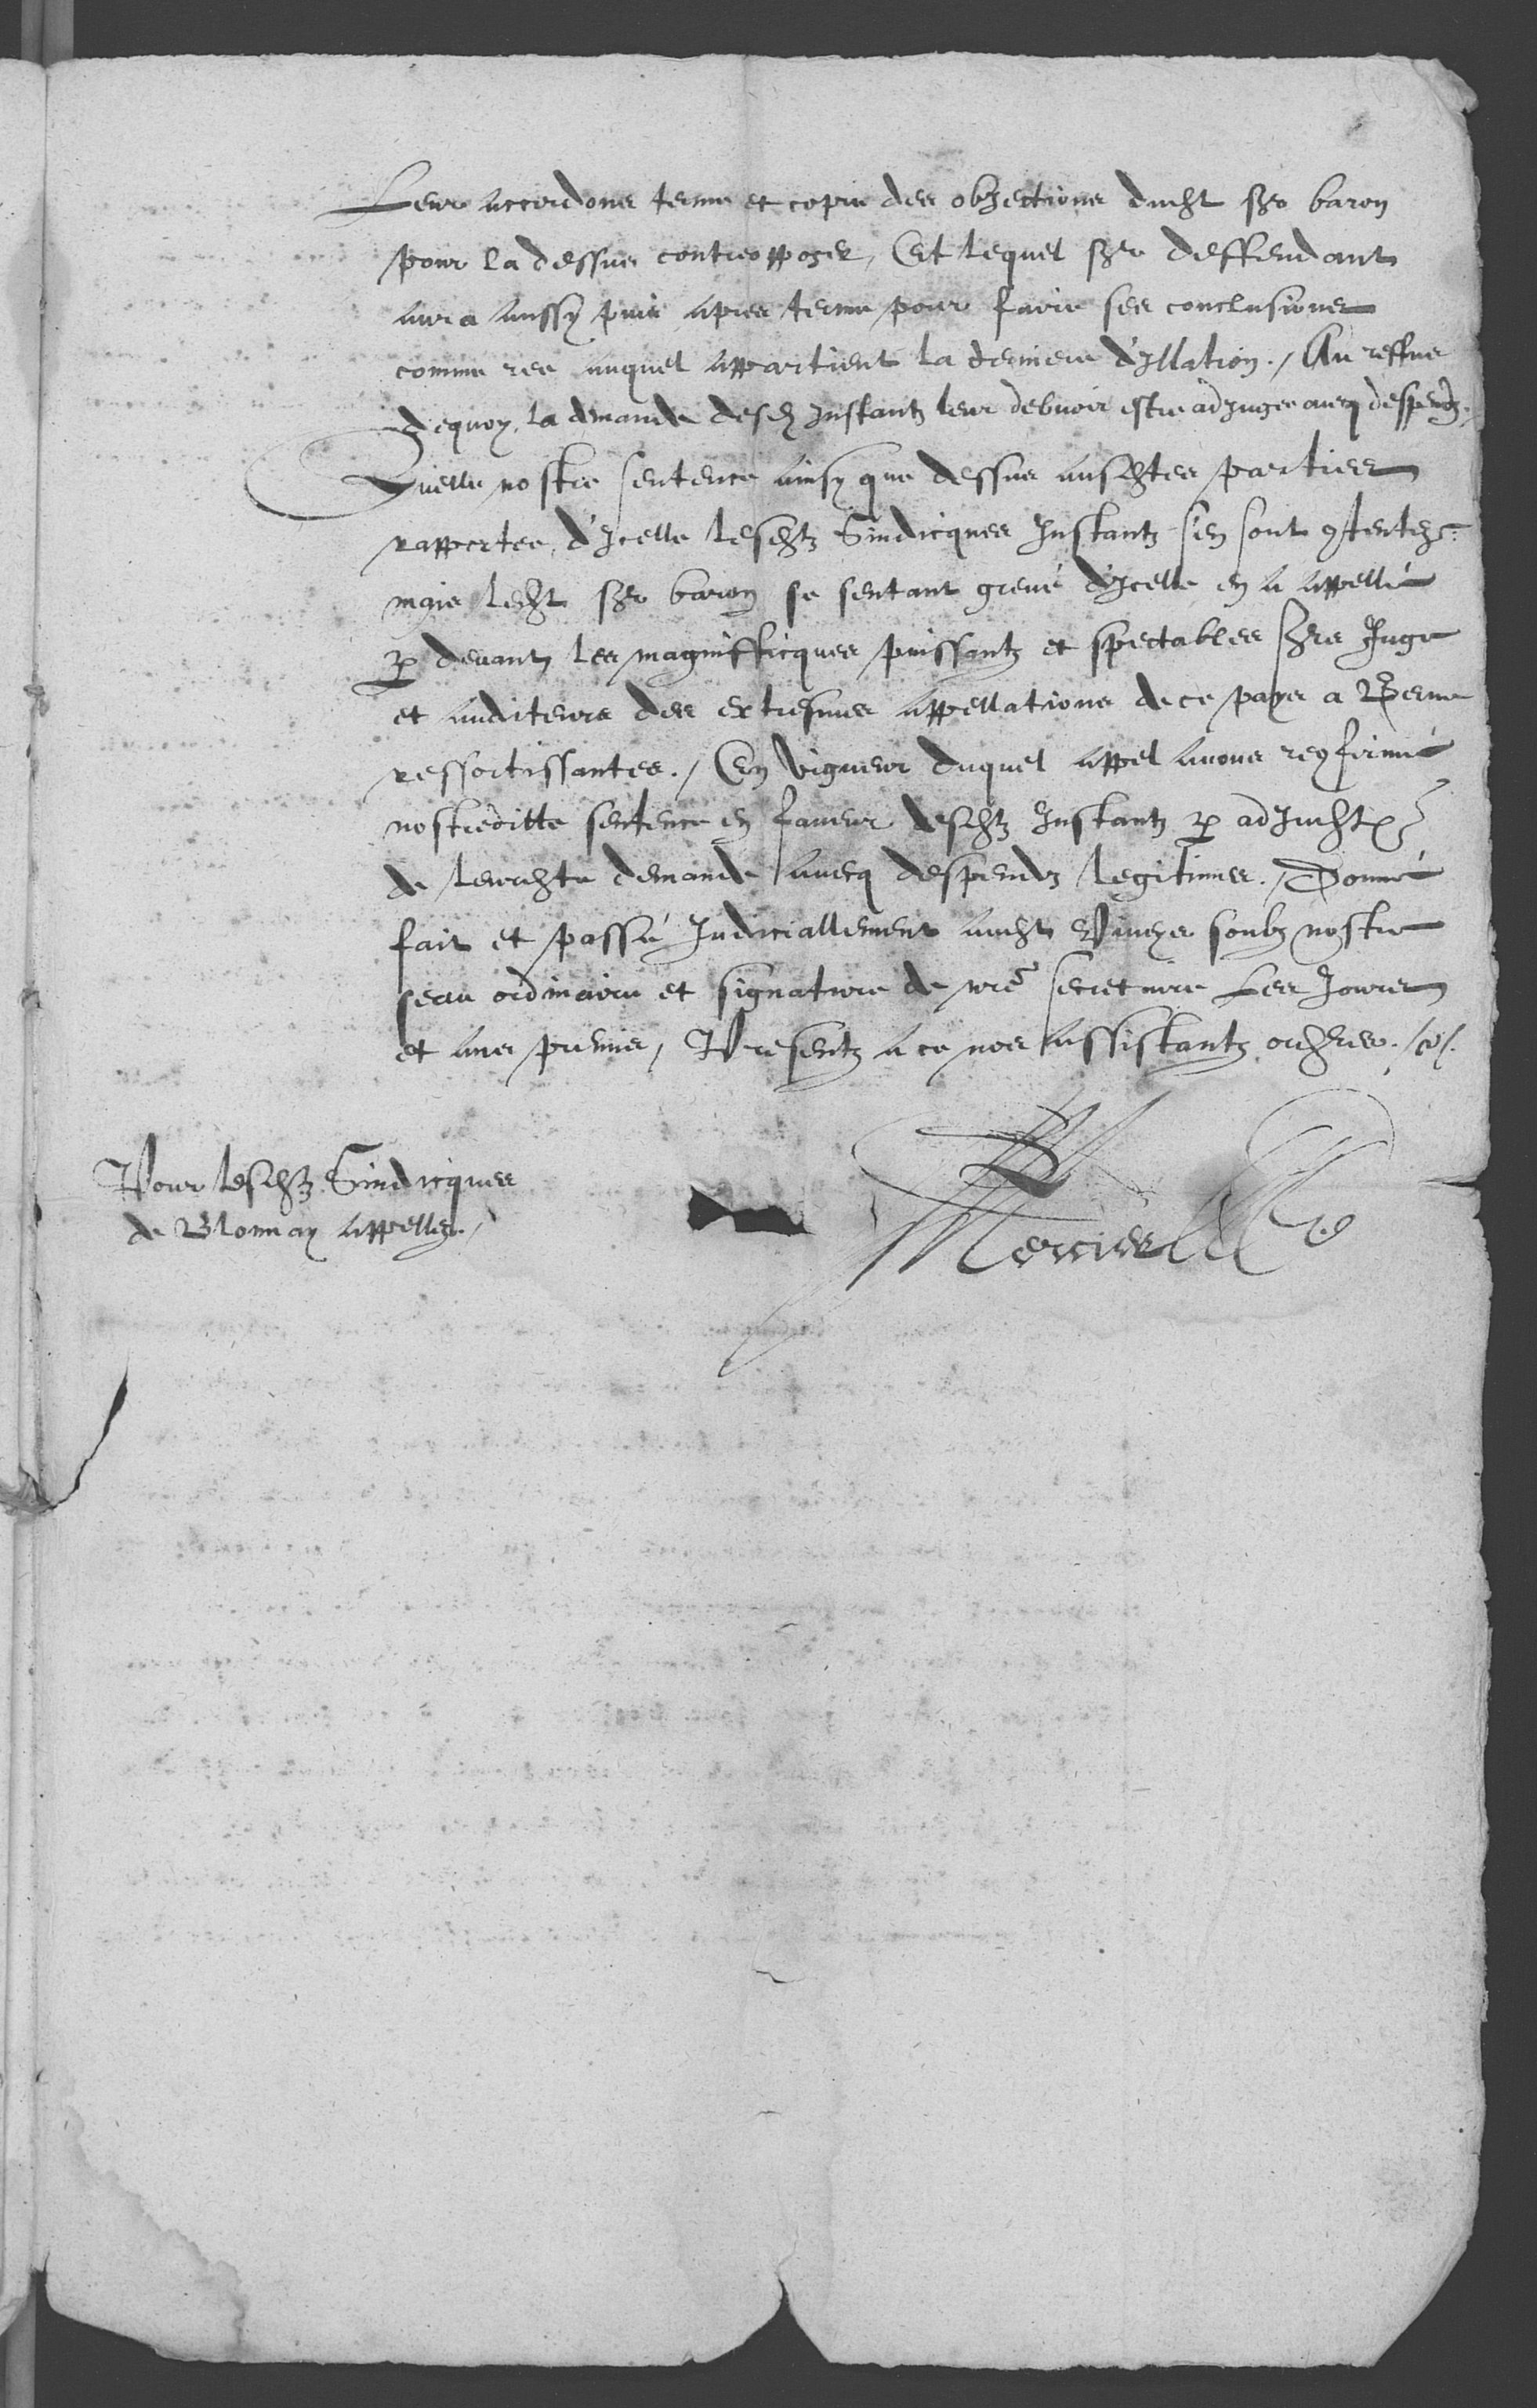 Leur accordons terme et copie des objections dudit sgr baron
pour la dessus contreopposer, Et lequel sgr deffendant
aura aussy puis apres terme pour faire ses conclusions
comme ree auquel appartient la derniere d'Illation. / Au reffus
dequoy, la demande desd Instantz leur debvoir estre adjugee avecq despendz. /
Quelle nostre sentence ainsy que dessus ausdites parties
rapportee, d'Icelle lesditz Sindicques Instantz s'en sont 9tentez:
mais ledit sgr baron se sentant grevé d'Icelle en a appellé
p devant les magnifficques puissantz et spectables sgrs Juge
et auditeurs des extresmes appellations de ce pays a Berne
ressortissantes. / En vigueur duquel appel avons re9firmé
nostreditte sentence en faveur desditz Instantz p adJud
de leurdite demande avecq despends legitimes. / Donné
fait et passé Judiciallement audit Viveys soubz nostre
seau ordinaire et signature de nre secretaire Les Jours
et ans premis, Presentz a ce nos assistantz ordres. /
Pour lesditz Sindicques
de Blonnay appellez. /
Mercier